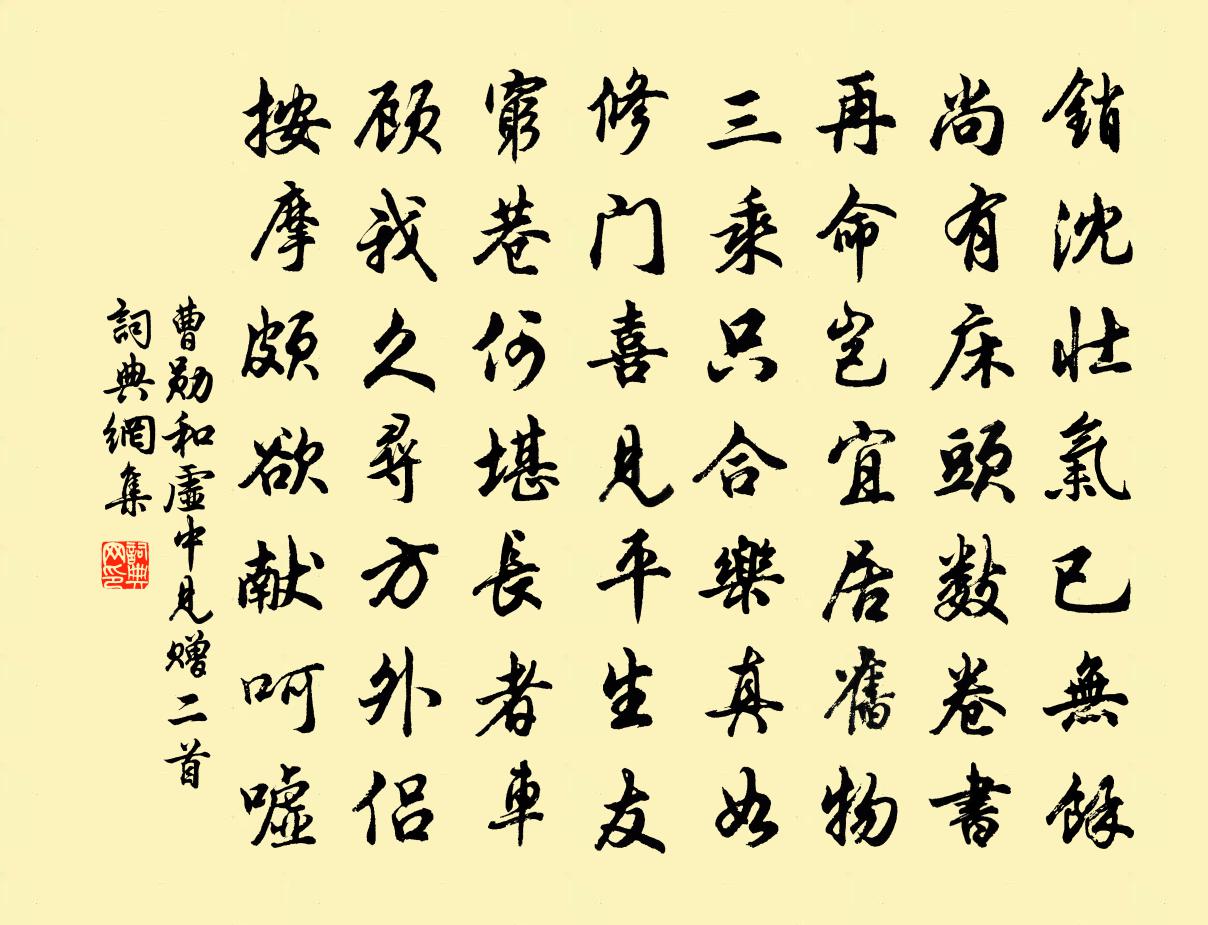 銷沈壯氣已無餘
尚有床頭數卷書
再命豈宜居舊物
三乘只合樂真如
修門喜見平生友
窮巷何堪長者車
顾我久尋方外侣
按摩頗欲献呵嘘
曹勋和虛中見赠二首
詞典網集
詞典网印